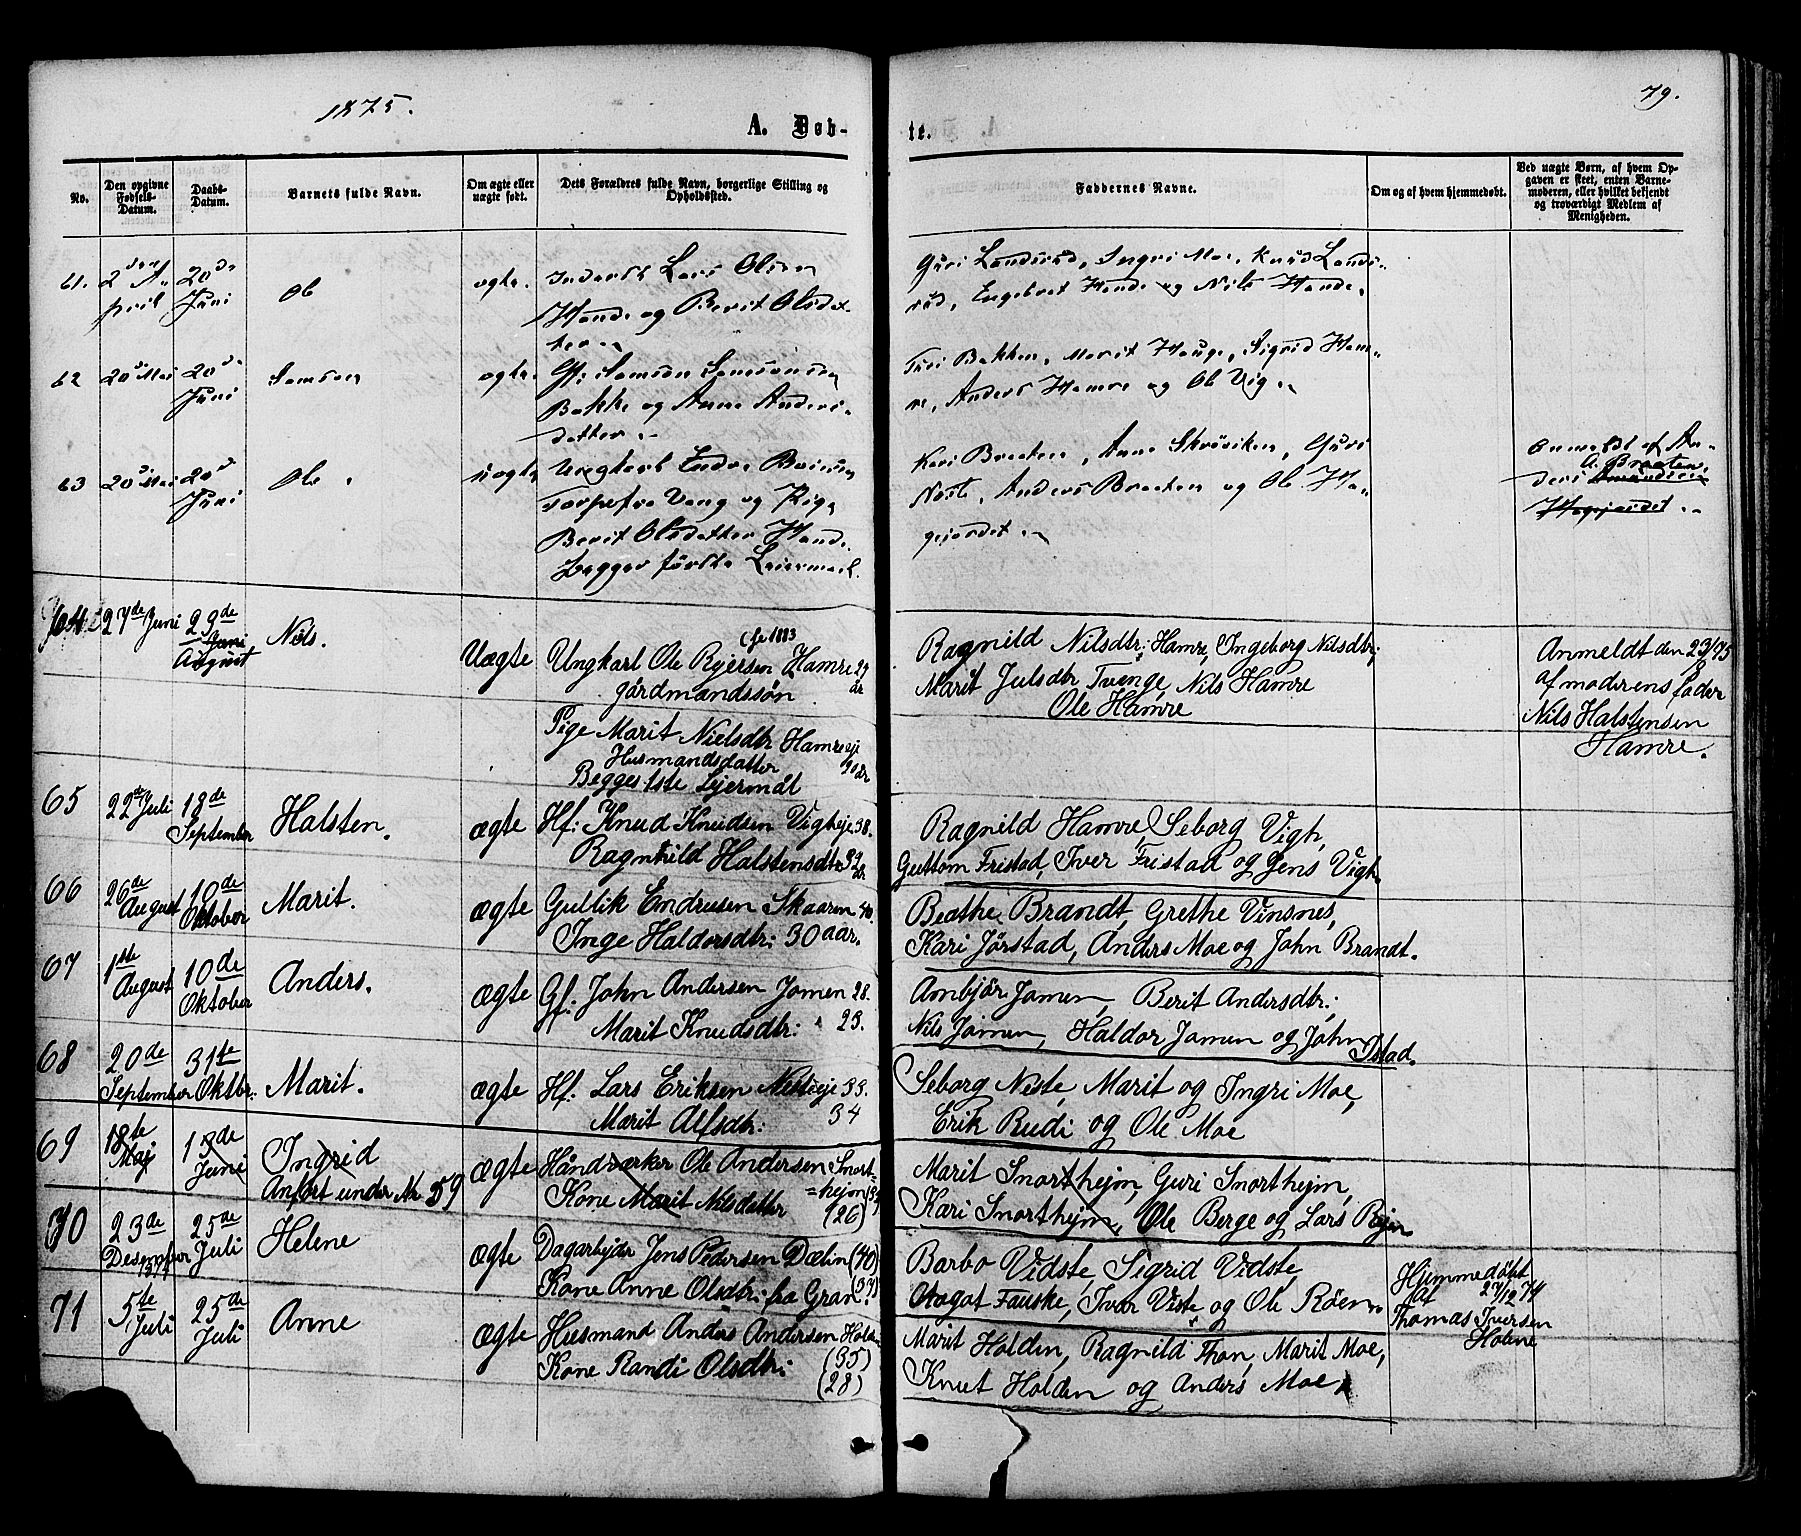 1875.
79.
A. Døb-
te.
No.
Den opgivne Fødsels-Datum.
Daabs-Datum.
Barnets fulde Navn.
Om ægte eller uægte født.
Dets Forældres fulde Navn, borgerlige Stilling og Opholdssted.
Faddernes Navne.
Om og af hvem hjemmedøbt.
Ved uægte Børn, af hvem Opgaven er skeet, enten Barnemoderen, eller hvilket bekjendt og troværdigt Medlem af Menigheden.
61.
2den April
20de Juni
Ole
ægte.
Lars Olsen
Hande og Berit Olsdat-
ter.
Guri Landsrud, Ingri Moe, Knud Lands-
rud, Engebret Hande og Nils Hande.
62
20de Mai
20de Juni
Samson
ægte.
Gf: Samson Samsonsen
Bakke og Anne Anders-
datter.
Turi Bakken, Marit Hauge, Sigrid Ham-
re, Anders Hamre og Ole Vig.
63
20de Mai
20de Juni
Ole.
uægte
Ungkarl Endre
Vang og Pige
Berit Olsdatter Hande.
Begges første Leiermaal.
Kari Braaten, Anne Skrøviken, Guri
Neste, Anders Braaten og Ole Ha-
gejordet.
Anmeldt af An-
A. Braaten.
ders
Hagejordet.
64
27de Juni
29de
Juni
August
Nils.
Uægte
(fø 1883
Ungkarl Ole Rejersen Hamre 29 år
gårdmandssøn
Pige Marit Nielsdtr Hamreeje
Husmandsdatter 20 år
Begges 1ste Lejermål
Ragnild Nilsdtr: Hamre, Ingeborg Nilsdtr;
Marit Julsdtr Tvenge, Nils Hamre
Ole Hamre
Anmeldt den 23/8 75
af moderens fader
Nils Halstensen
Hamre.
65
22de Juli
18de September
Halsten.
ægte
Hf: Knud Knudsen Vigheje 38.
Ragnhild Halstensdtr 32 år
Ragnild Hamre, Seborg Vigh,
Guttom Fristad, Iver Fristad og Jens Vigh.
66
26de August
10de Oktober
Marit.
ægte
Gullik Endresen Skaaren 40.
Inge Haldorsdtr: 30 aar.
Beathe Brandt, Grethe Vinsnes,
Kari Jørstad, Anders Moe og John Brandt.
67
1ste August
10de Oktober
Anders.
ægte
Gf. John Andersen Jomen 28.
Marit Knudsdtr: 23.
Ambjør Jomen, Berit Andersdtr:
Nils Jomen, Haldor Jomen og John
Istad.
68
20de September
31te Oktbr:
Marit.
ægte
Hf. Lars Eriksen Nesteeje 33.
Marit Alfsdtr: 34
Seborg Neste, Marit og Ingri Moe,
Erik Rudi og Ole Moe
69
18te Maj
13de Juni
Ingrid
Anført under Nr 59
ægte
Håndværker Ole Andersen Snort-
=hejm
Kone Marit Nilsdatter (26)
Marit Snorthejm, Guri Snorthejm,
Kari Snorthejm, Ole Berge og Lars Rejn
70
23de Desember 1874
25de Juli
Helene
ægte
Dagarbejdr Jens Pedersen Dælin (40)
Kone Anne Olsdtr: fra Gran (33)
Barbo Vidste, Sigrid Vidste,
Aagot Fauske, Iver Viste og Ole Røen.
Hjemmedøpt
27/12 74
af
Thomas Iversen
Holene
71
5te Juli
25de Juli
Anne
ægte
Husmand Anders Andersen Holden (35)
Kone Randi Olsdtr: (28)
Marit Holden, Ragnild Thon, Marit Moe,
Knut Holden og Anders Moe,